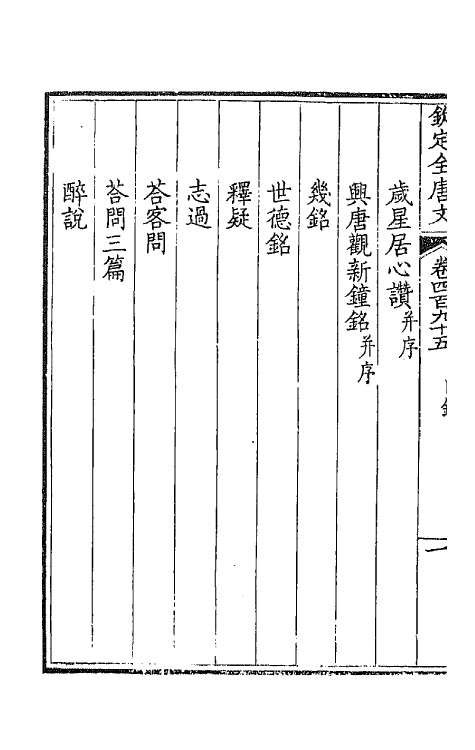 欽定全唐文 卷四百九十五 目錄 一
歲星居心讚并序
興唐觀新鐘銘并序
幾銘
世德銘
釋疑
志過
荅客問
荅問三篇
醉說